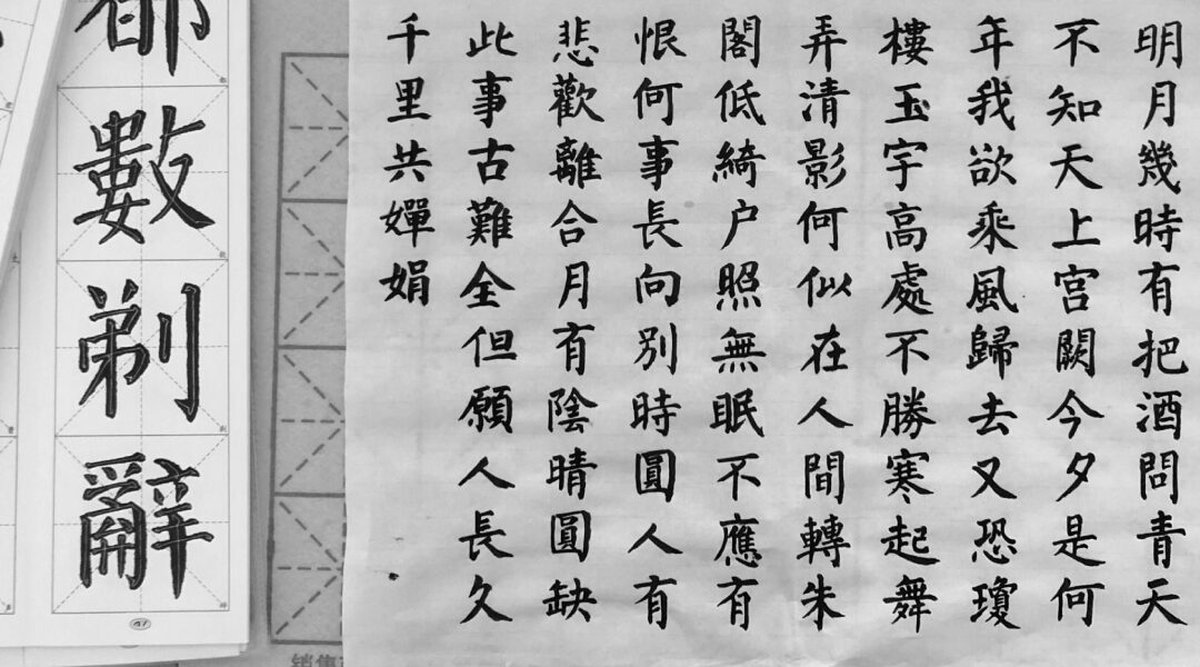 明月幾時有把酒問青天
不知天上宫闕今夕是何
年我欲乘風歸去又恐瓊
樓玉宇高處不勝寒起舞
弄清影何似在人間轉朱
閣低綺户照無眠不應有
恨何事長向别時圓人有
悲歡離合月有陰晴圓缺
此事古難全但願人長久
千里共嬋娟
都數剃辭
销售